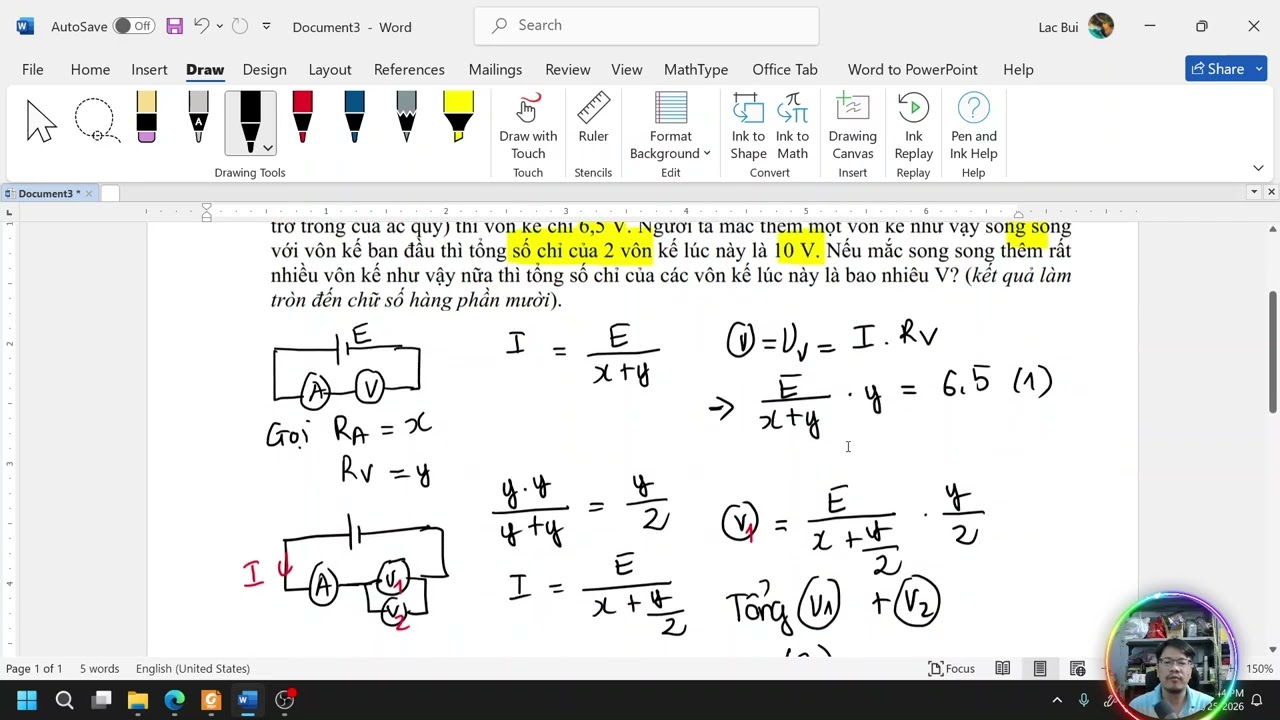 AutoSave Off Document3 - Word Search Lac Bui
File Home Insert Draw Design Layout References Mailings Review View MathType Office Tab Word to PowerPoint Help Share
Draw with Touch
Ruler
Format Background
Ink to Shape
Ink to Math
Drawing Canvas
Ink Replay
Pen and Ink Help
Drawing Tools Touch Stencils Edit Convert Insert Replay Help
Document3 *
1 2 3 4 5 6
trở trong của ắc quy) thì vôn kế chỉ 6,5 V. Người ta mắc thêm một vôn kế như vậy song song
với vôn kế ban đầu thì tổng số chỉ của 2 vôn kế lúc này là 10 V. Nếu mắc song song thêm rất
nhiều vôn kế như vậy nữa thì tổng số chỉ của các vôn kế lúc này là bao nhiêu V? (kết quả làm
tròn đến chữ số hàng phần mười).
E
A V
Gọi R_A = x
R_V = y
I = E/(x+y)
V = U_V = I . R_V
→ E/(x+y) . y = 6.5 (1)
I
A V1
V2
y.y/(y+y) = y/2
I = E/(x + y/2)
V1 = E/(x + y/2) . y/2
Tổng V1 + V2
Page 1 of 1 5 words English (United States) Focus 150%